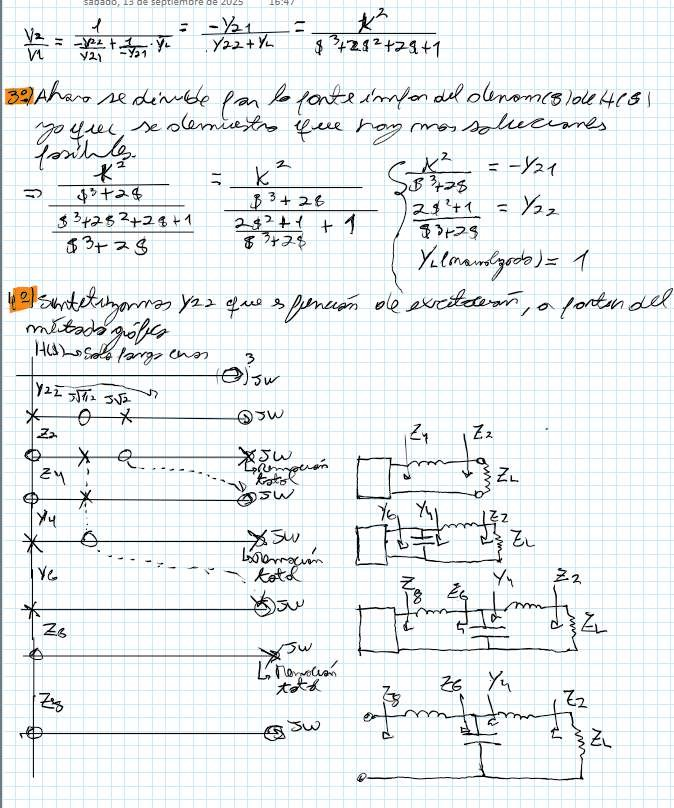 sábado, 13 de septiembre de 2025 16:47
V2/V1 = 1/(-Y22/Y21 + 1/-Y21 · YL) = -Y21/(Y22+YL) = k²/($³+2$²+2$+1)
3º) Ahora se divide por la parte impar del denom($) de H($)
ya que, se demuestra que hay mas soluciones
posibles.
⇒ (k²/($³+2$))/(($³+2$²+2$+1)/($³+2$)) = (k²/($³+2$))/((2$²+1)/($³+2$) + 1)
{ k²/($³+2$) = -Y21
(2$²+1)/($³+2$) = Y22
YL(normalizada) = 1
4º) Sintetizamos Y22 que es función de excitación, a partir del
método gráfico
H($) → Solo tengo ceros
3
JW
Y22 J√1/2 J√2
JW
Z2
JW
↳ Remoción
total
Z4
JW
Y4
JW
↳ Remoción
total
Y6
JW
Z6
JW
↳ Remoción
total
Z8
JW
Z4 Z2
ZL
Y6 Y4 Z2
ZL
Z8 Z6 Y4 Z2
ZL
Z8 Z6 Y4 Z2
ZL